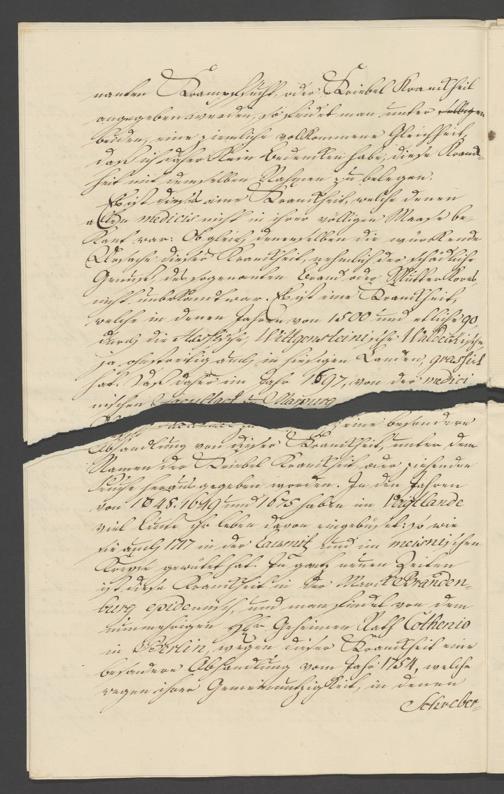 nanten Krampfsucht, oder Kriebel Krankheit
angegeben worden, so findet man unter
beiden, eine ziemliche vollkommene Gleichheit,
daß ich daher kein bedenken habe, diese Krank-
heit mit demselben Nahmen zu belegen.
Es ist dieses eine Krankheit, welche denen
alten medicis nicht in ihrer völligen Maaße be-
kant war: Obgleich denenselben die würkende
Ursache dieser Krankheit, nehmlich der schädliche
Genuß des sogenanten Brand oder Mutter Korns
nicht unbekannt war. Es ist eine Krankheit,
welche in denen Jahren von 1500 und etliche 90
durch die Hessische, Wittgensteinische Waldeckische
ja auch in hiesigen Landen, grassirt
hat. Daß daher im Jahr 1597, von der medici
nischen Facultaet zu Marpurg
eine besondere
Abhandlung von dieser Krankheit, unter dem
Namen der Kriebel Krankheit, oder ziehenden
Seuche heraus gegeben worden. In den Jahren
von 1648. 1649 und 1675 haben im Voigtlande
viel Leute ihr Leben davon eingebüßet: so wie
sie auch 1717 in der Lausnitz und im meisnischen
Kreise gewütet hat. In ganz neuen Zeiten
ist diese Krankheit in der Marck Branden-
burg epidemisch, und man findet von dem
nunmehrigen Geheimen Rath Cothenio
in Berlin, wegen dieser Krankheit eine
besondere Abhandlung vom Jahr 1754, welche
wegen ihrer Gemeinnützigkeit, in denen
Schreber-